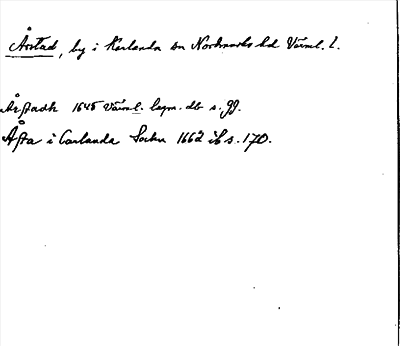 Årstad, by i Karlanda sn Nordmarks hd Värml. l.
Årstadh 1645 Värml. lagm. db s. 99.
Åsta i Carlanda Sockn 1662 ib s. 170.